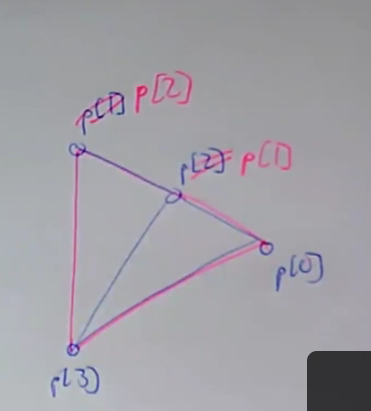 p[1] p[2]
p[2] p[1]
p[0]
p[3]